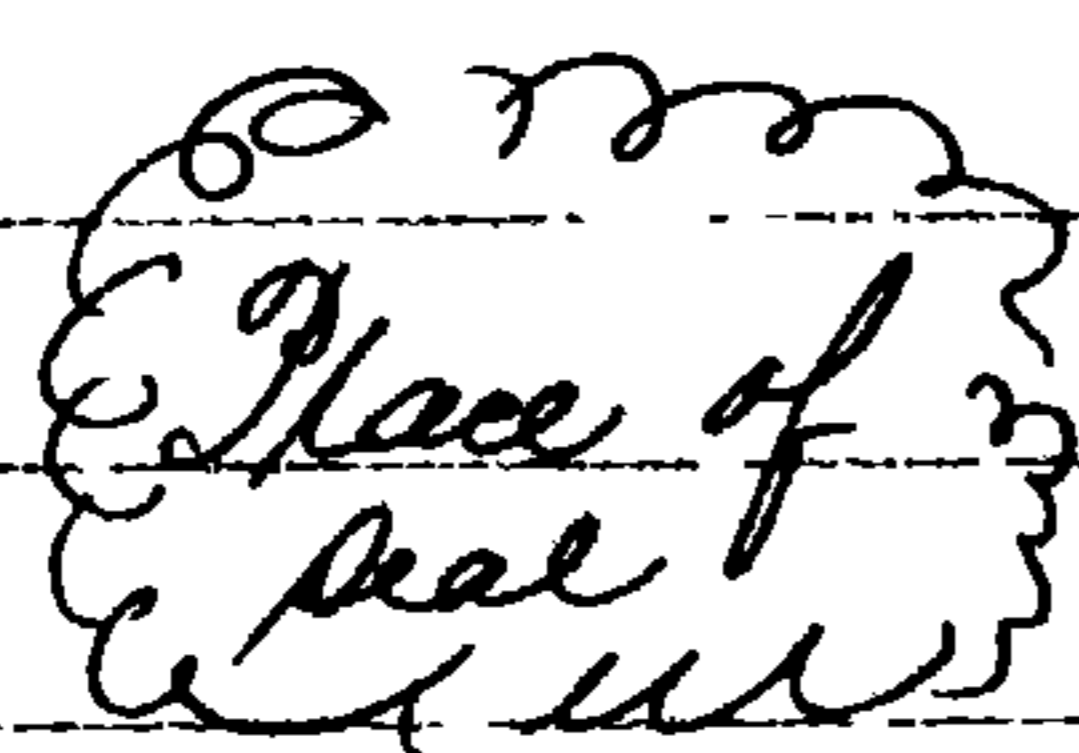 Place of
Seal